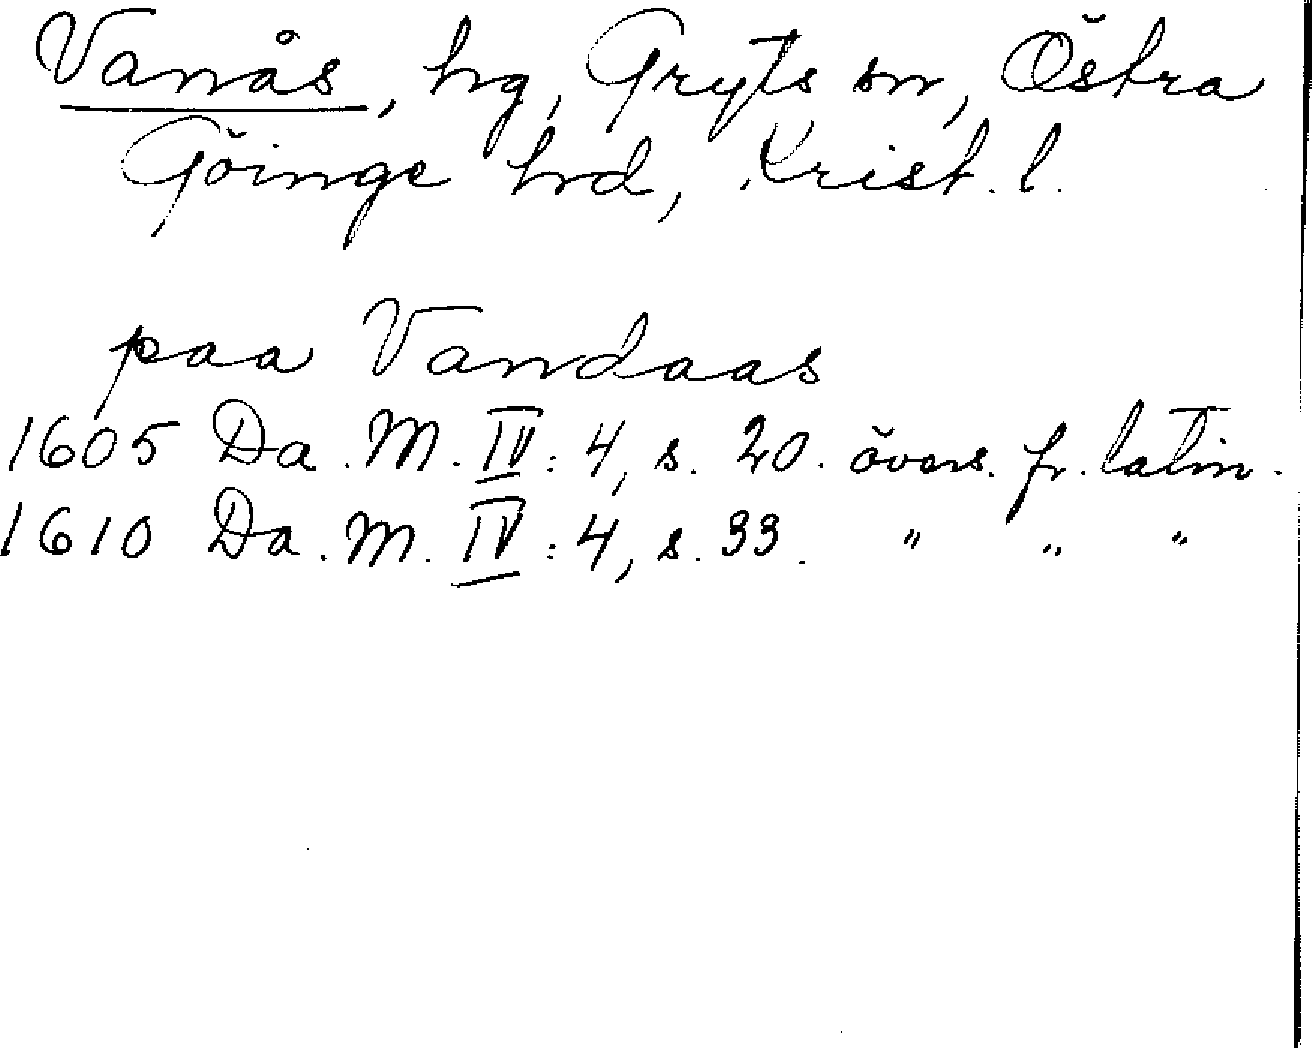 Vanås, hg, Gryts sn, Östra
Göinge hrd, Krist. l.
paa Vandaas
1605 Da. M. IV: 4, s. 20. övers. fr. latin.
1610 Da. M. IV: 4, s. 33. " " "